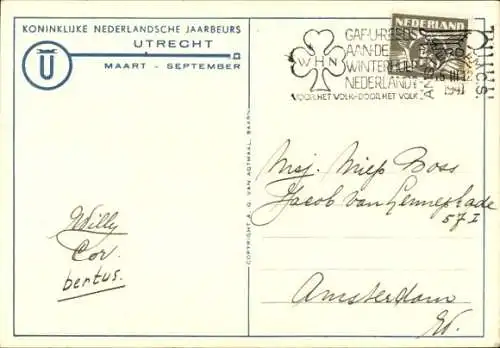 KONINKLIJKE NEDERLANDSCHE JAARBEURS
UTRECHT
MAART - SEPTEMBER
U
WHN
GAF U REEDS
AAN DE
WINTERHULP
NEDERLAND?
VOOR HET VOLK - DOOR HET VOLK
NEDERLAND
1941
COPYRIGHT A. G. VAN AGTMAAL, BAARN
Mej. Miep Boss
Jacob van Lennepkade
57 I
Amsterdam
W.
Willy
Cor.
bertus.